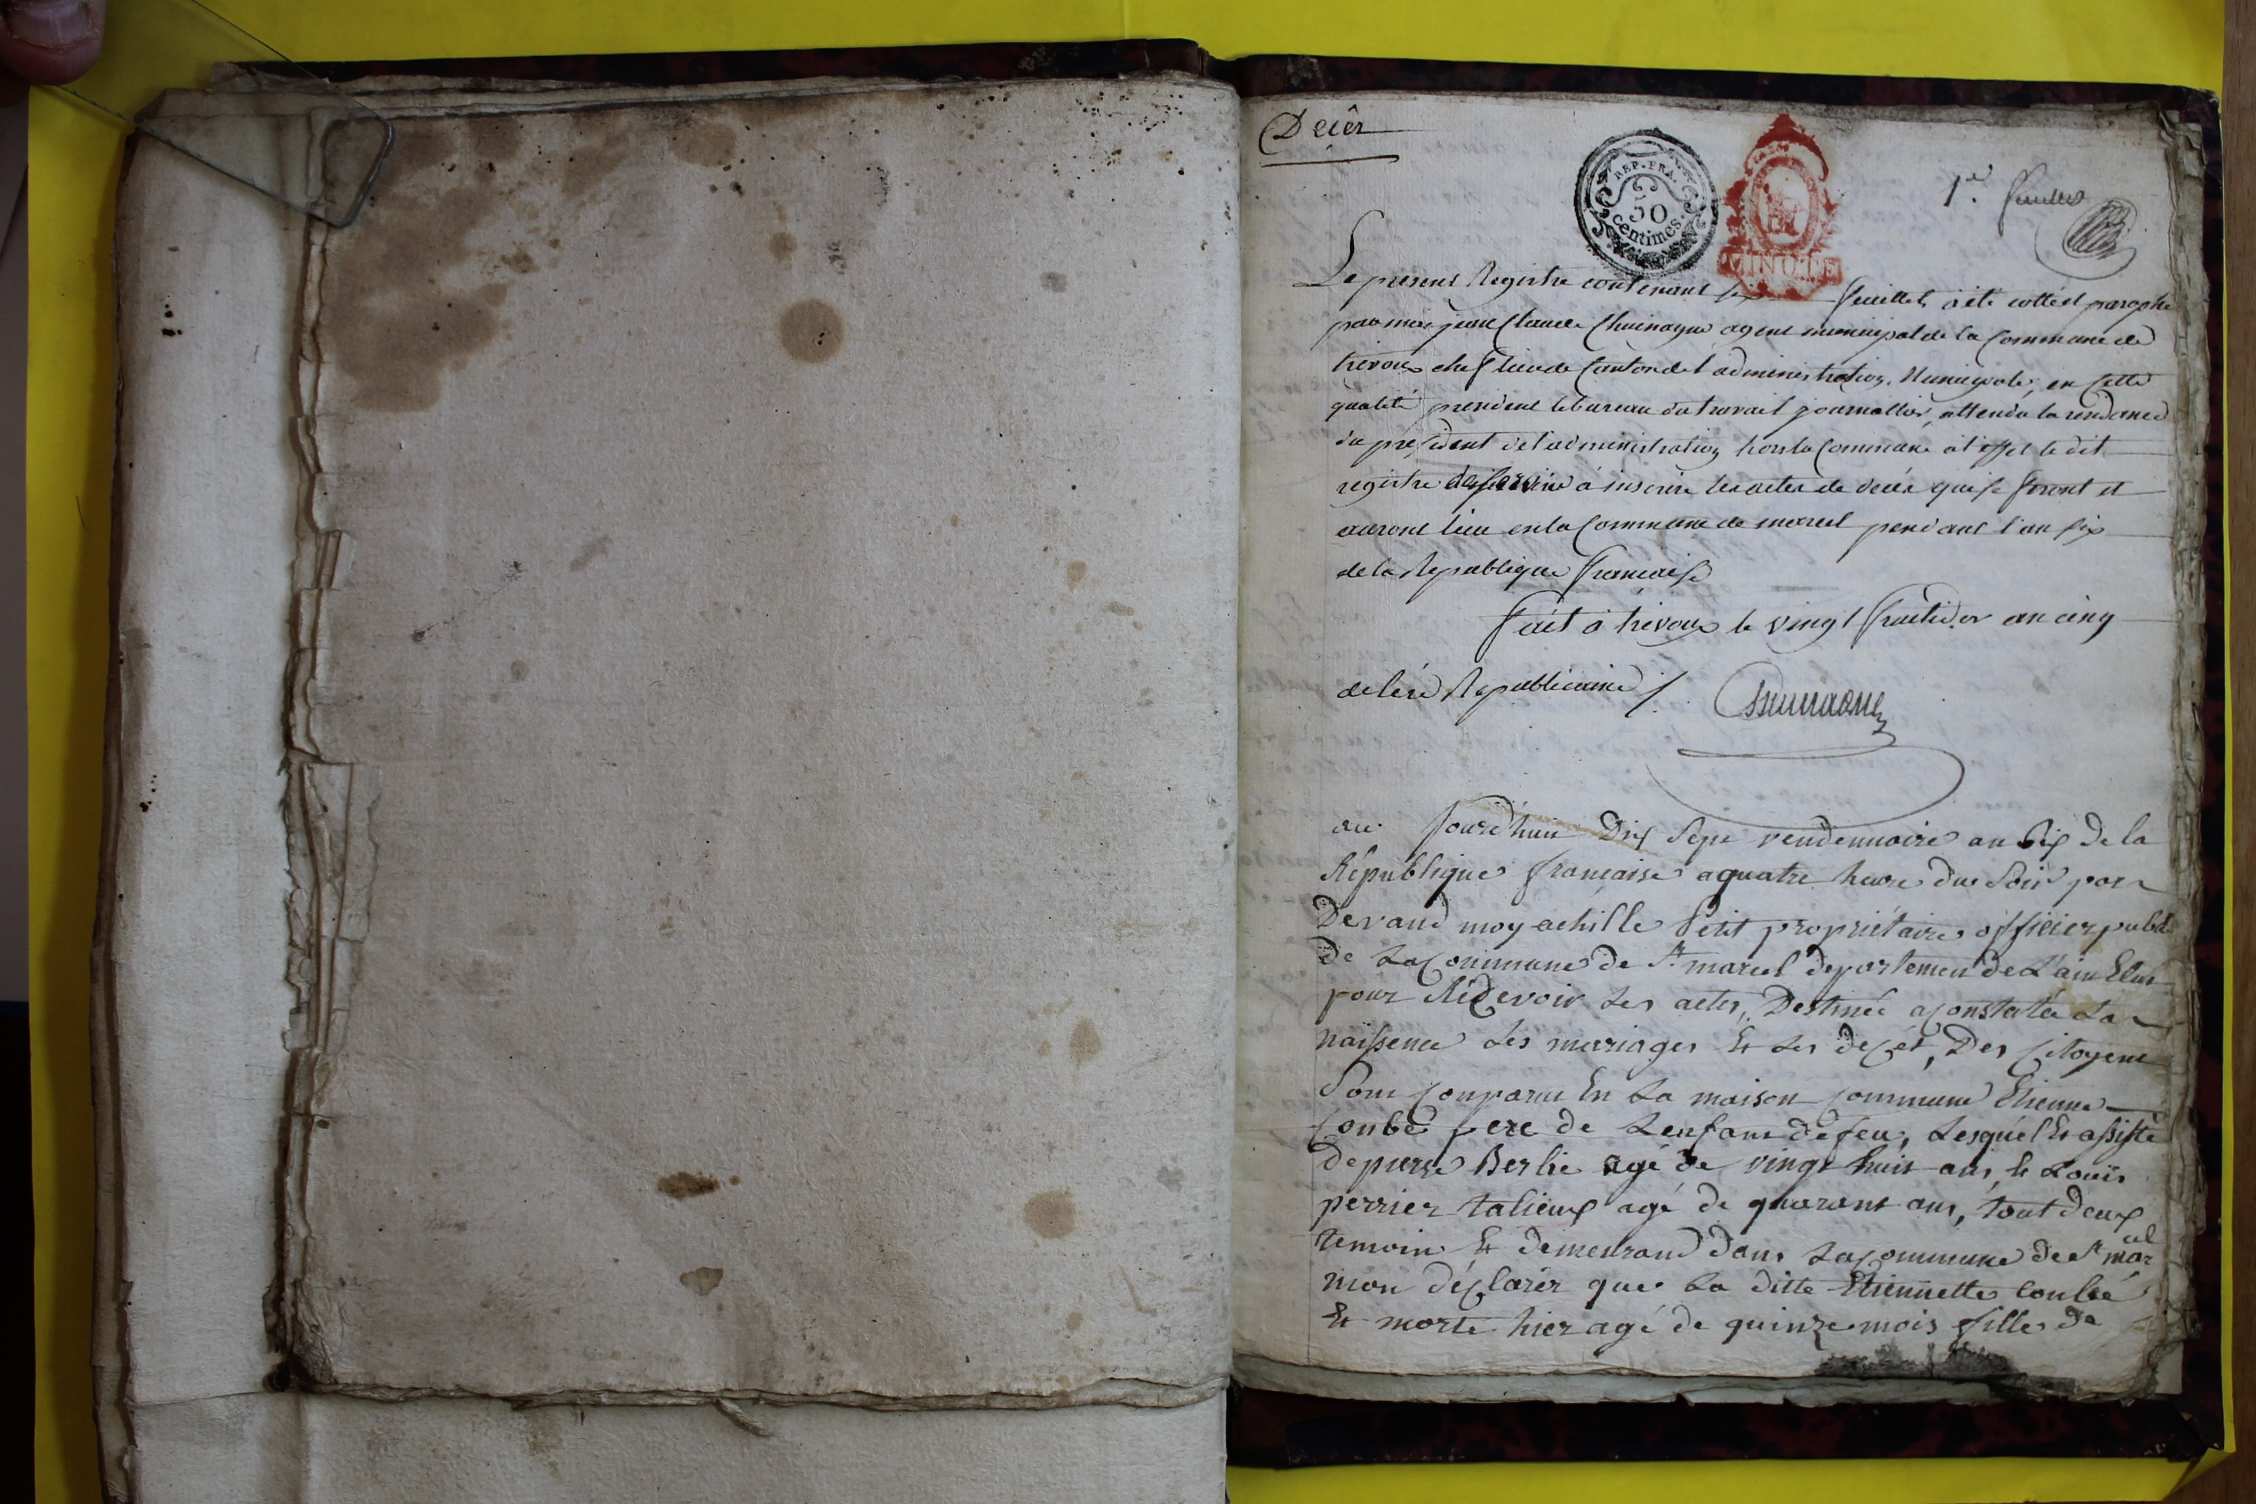 Decès
REP. FRA.
50
centimes.
MINUTE
1er feuillet
Le present Registre contenant six feuillets a été cotté et paraphé
par moi jean Claude Chuinague agent municipal de la Commune de
trevoux chef lieu de Canton de l'administration Municipale, en cette
qualité president le bureau du travail journallier, attendu la residence
du president de l'administration hors la Commune a l'effet le dit
registre de servire à inscrire les actes de decés qui se feront et
auront lieu en la Commune de marcel pendant l'an six
de la Republique francaise
fait à trevoux le vingt fructidor an cinq
de l'ére Republicaine
au jourd'huit Dix Sept vendemiaire an Six de la
République française a quatre heure du Soir par
Devand moy achille petit propriétaire officier public
de La Commune de St marcel departement de L'ain Elut
pour Récevoir Les actes, Destinéé a Constatée La
naissence Les mariages Et Les decét, Des Citoyens
Sont Conparut En La maison Commune Etienne
Conbe pere de Lenfant defeu, Lesquel Et assisté
de pierre Berlie agé de vingt huit ans, Et Louis
perrier talieux agé de quarant ans, tout deux
temoin Et demeurand dans La Commune de St mar
cel
mon déclarér que La ditte Etiennette Conbe
Et morte hier agé de quinze mois fille de